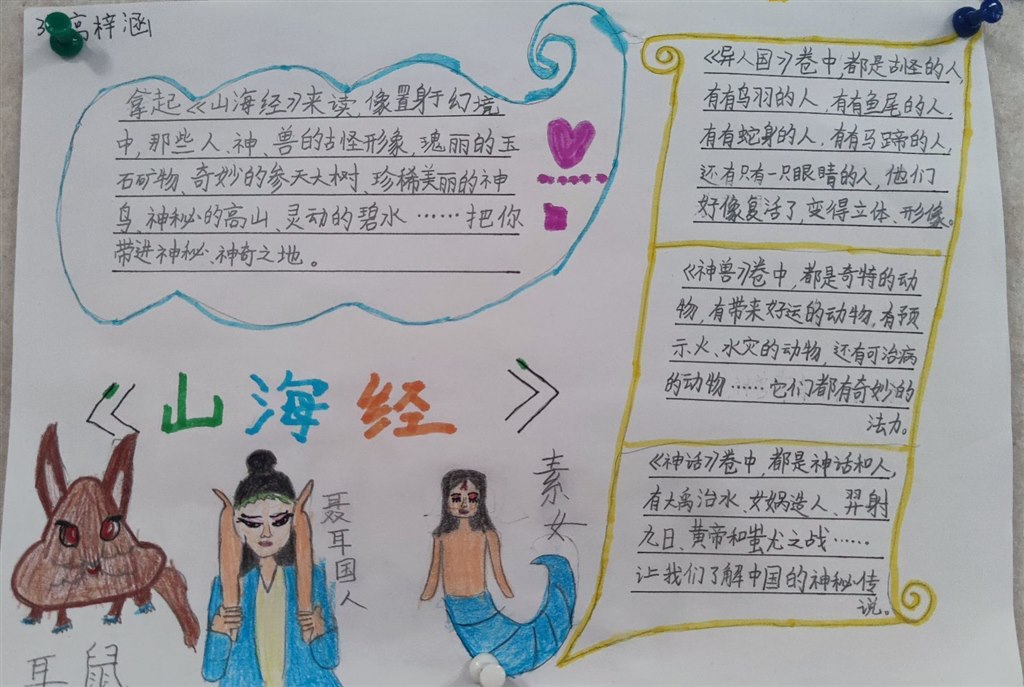 高梓涵
拿起《山海经》来读,像置身于幻境
中,那些人、神、兽的古怪形象,瑰丽的玉
石矿物、奇妙的参天大树、珍稀美丽的神
鸟、神秘的高山、灵动的碧水……把你
带进神秘、神奇之地。
《异人国》卷中,都是古怪的人,
有有鸟羽的人,有有鱼尾的人,
有有蛇身的人,有有马蹄的人,
还有只有一只眼睛的人,他们
好像复活了,变得立体、形像。
《神兽》卷中,都是奇特的动
物,有带来好运的动物,有预
示火、水灾的动物,还有可治病
的动物……它们都有奇妙的
法力。
《神话》卷中,都是神话和人,
有大禹治水、女娲造人、羿射
九日、黄帝和蚩尤之战……
让我们了解中国的神秘传
说。
《山海经》
耳鼠
聂耳国人
素女